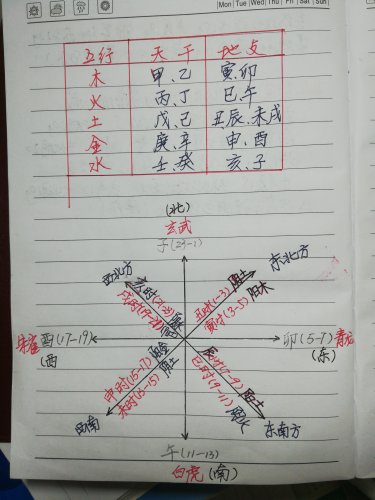 Mon Tue Wed Thu Fri Sat Sun
五行 天干 地支
木 甲、乙 寅、卯
火 丙、丁 巳、午
土 戊、己 丑辰、未戌
金 庚、辛 申、酉
水 壬、癸 亥、子
(北)
玄武
子(23-1)
西北方 东北方
亥时(21-23)
戌时(19-21)
丑时(1-3) 阴土
寅时(3-5) 阳木
朱雀 酉(17-19) 卯(5-7) 青龙
(西 (东)
申时(15-17) 阳金
未时(13-15) 阴土
辰时(7-9) 阳土
巳时(9-11) 阴火
西南 东南方
午(11-13)
白虎(南)